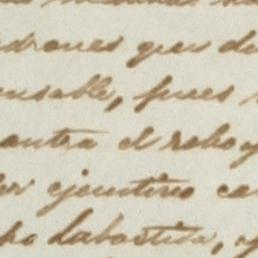 drones que de
ensable, pues
contra el robo y
er ejecutivo ca
ho Labastida, y